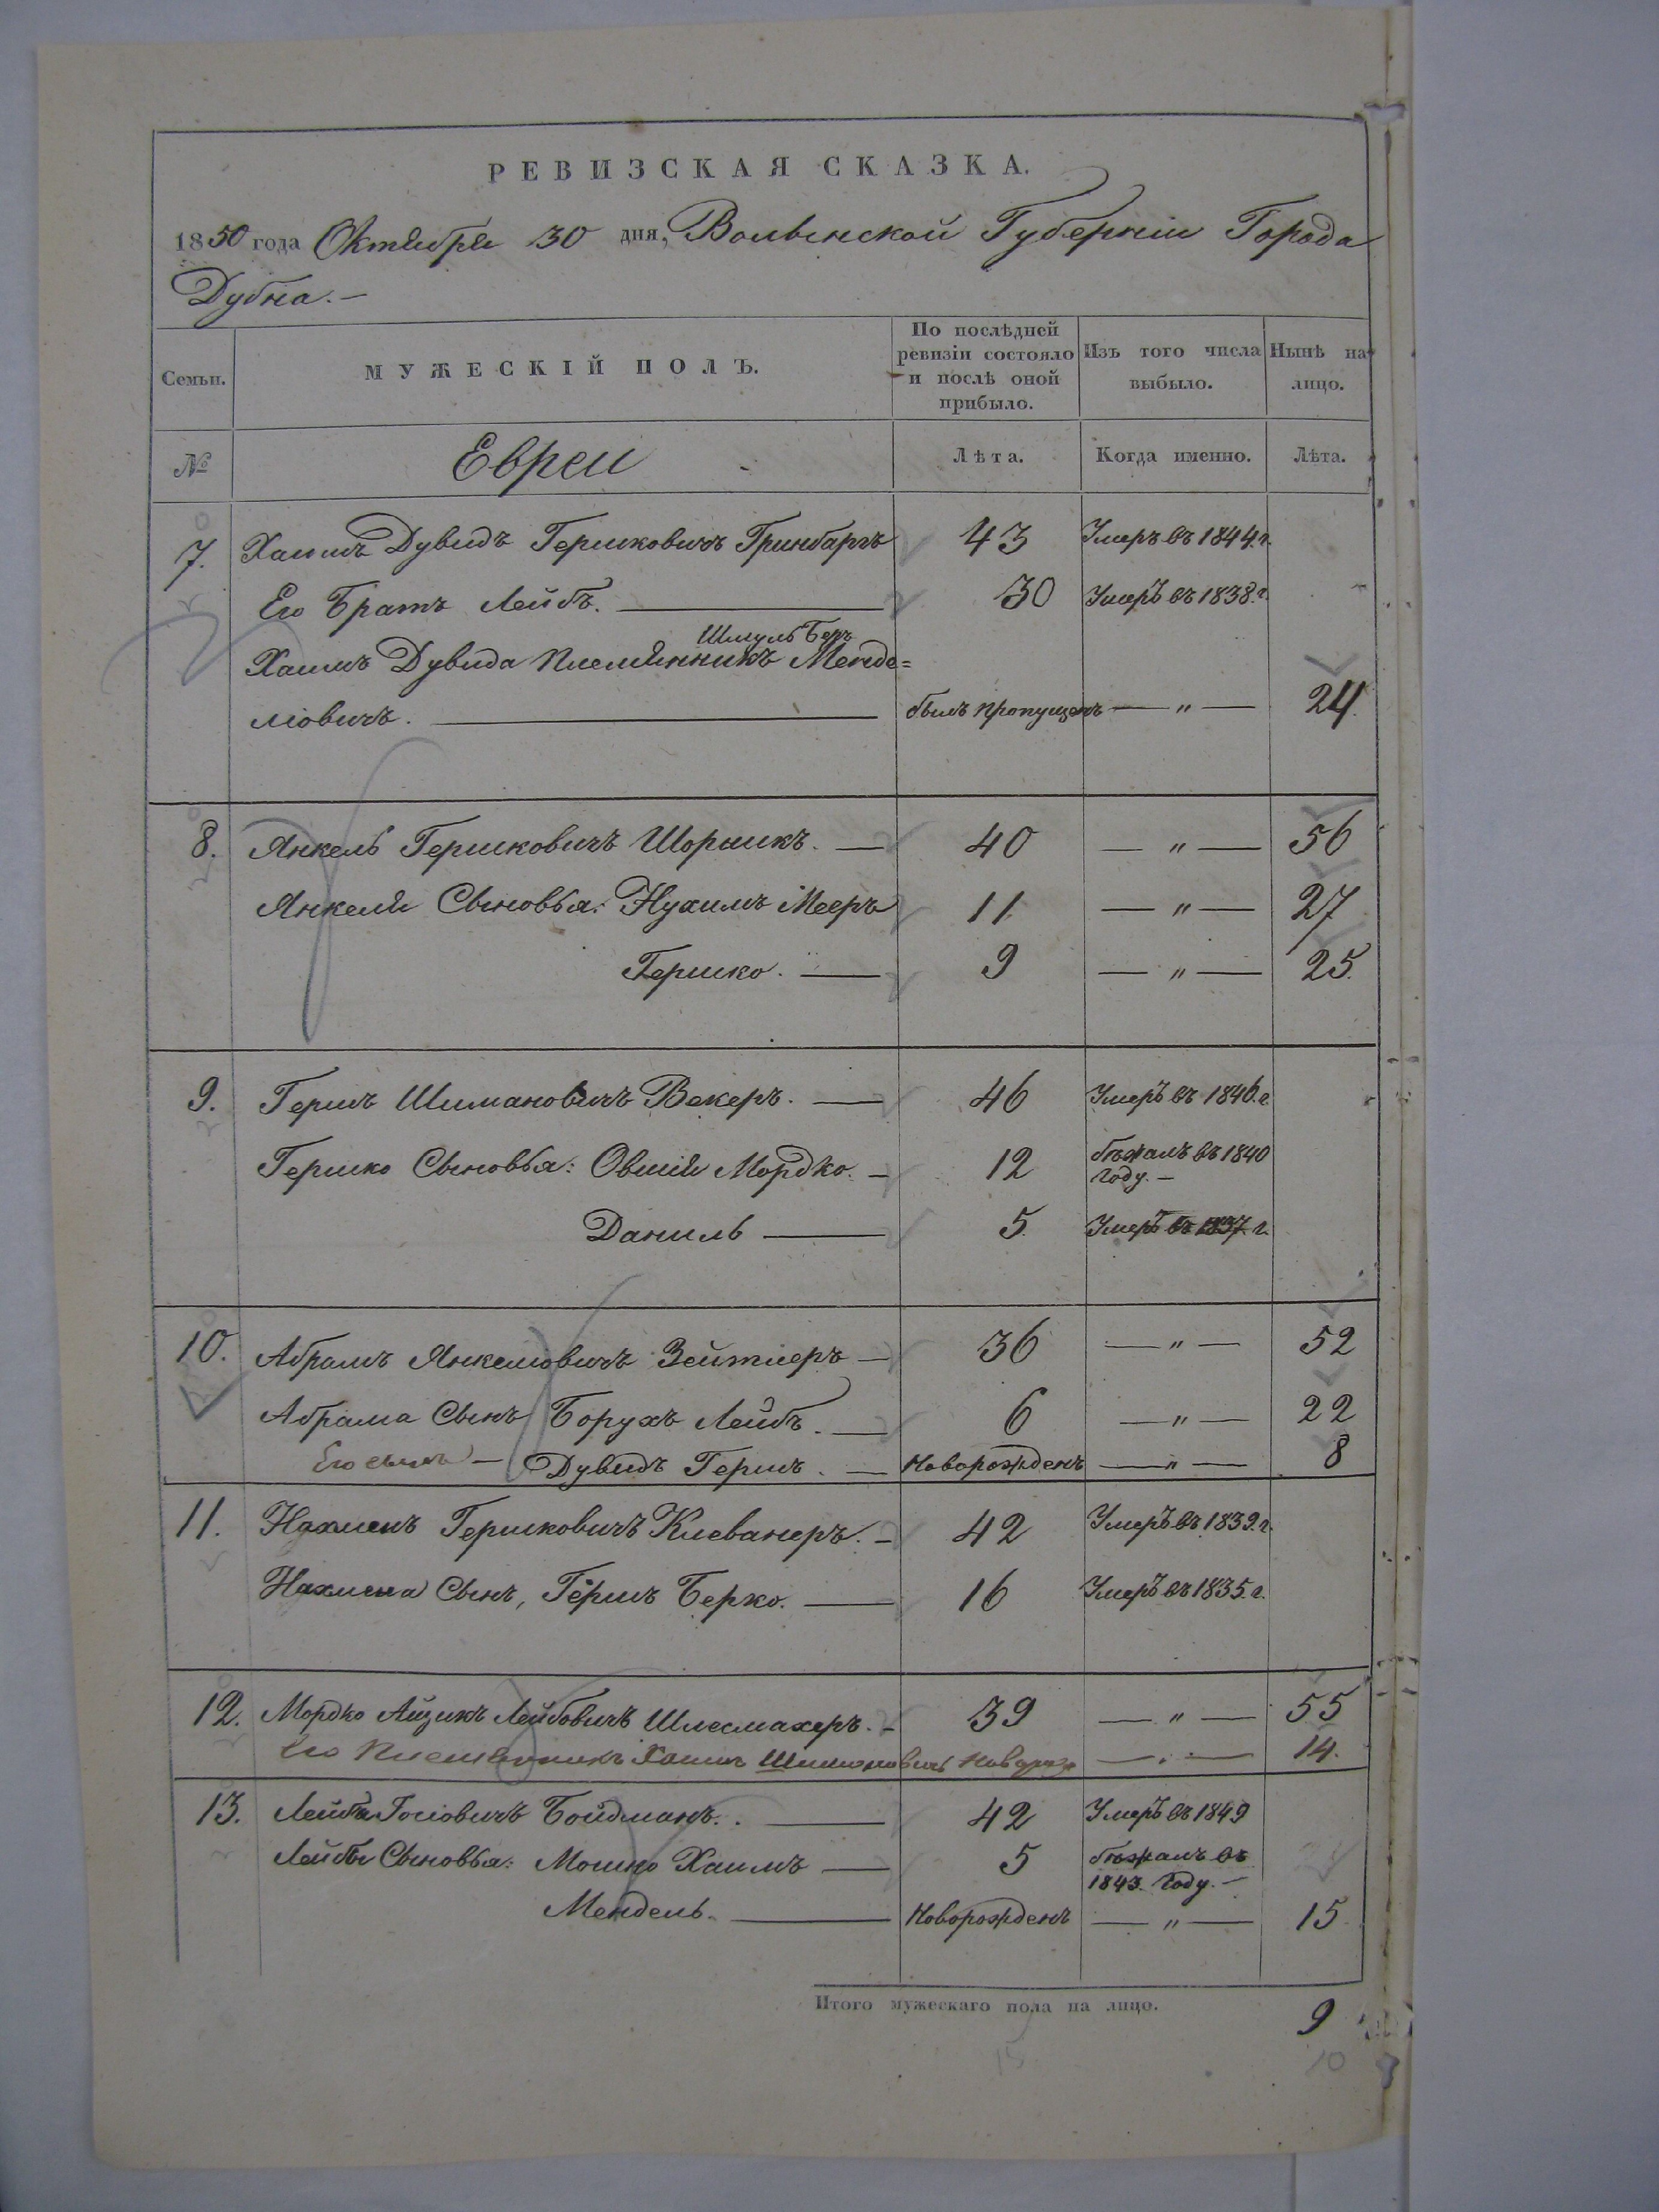 РЕВИЗСКАЯ СКАЗКА.
1850 года Октября 30 дня, Волынской Губерніи Города
Дубна.—
Семьи.
МУЖЕСКІЙ ПОЛЪ.
По послѣдней ревизіи состояло и послѣ оной прибыло.
Изъ того числа выбыло.
Нынѣ на лицо.
№ Евреи Лѣта. Когда именно. Лѣта.
7. Хаимъ Дувидъ Гершковичъ Гринбаргъ 43 Умеръ въ 1844 г.
Его Братъ Лейбъ. — 30 Умеръ въ 1838 г.
Шмуль Беръ
Хаимъ Дувида Племянникъ Менде=
ліовичъ. — былъ пропущенъ — " — 24.
8. Янкель Гершковичъ Шорникъ. — 40 — " — 56
Янкеля Сыновья: Нухимъ Мееръ 11 — " — 27
Гершко. — 9 — " — 25.
9. Гершъ Шимановичъ Векеръ. — 46 Умеръ въ 1846. г.
Гершко Сыновья: Овшія Мордко. — 12 бѣжалъ въ 1840 году. —
Даниль — 5. Умеръ въ 1837. г.
10. Абрамъ Янкеліовичъ Зейтлеръ — 36 — " — 52
Абрама Сынъ Борухъ Лейбъ. — 6 — " — 22
Его сынъ — Дувидъ Гершъ. — Новорожденъ — " — 8
11. Нахменъ Гершковичъ Клеванеръ. — 42 Умеръ въ 1839. г.
Нахмена Сынъ, Гершъ Берко. — 16 Умеръ въ 1835. г.
12. Мордко Айзикъ Лейбовичъ Шлесмахеръ. — 39 — " — 55
Его Племянникъ Хаимъ Шимановичъ Новорож — " — 14.
13. Лейба Іосіовичъ Бойдманъ. — 42 Умеръ въ 1849
Лейбы Сыновья: Мошко Хаимъ — 5 бѣжалъ въ 1843. Году. —
Мендель. — Новорожденъ — " — 15.
Итого мужескаго пола на лицо. 9
15 10